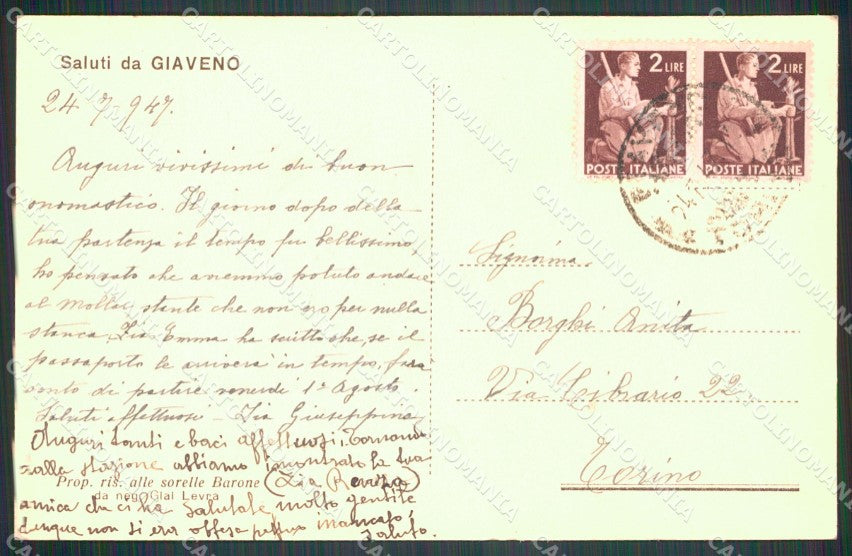 Saluti da GIAVENO
24 7 947.
Auguri vivissimi di buon
onomastico. Il giorno dopo della
tua partenza il tempo fu bellissimo,
ho pensato che avremmo potuto andare
al Mollar, stante che non ero per nulla
stanca. Zia Emma ha scritto che, se il
passaporto le arriverà in tempo, farà
conto di partire venerdì 1º Agosto.
Saluti affettuosi - Zia Giuseppina
Auguri tanti e baci affettuosi, tornando
dalla stazione abbiamo incontrato la tua
Prop. ris. alle sorelle Barone (Zia
da neg. Glal Levra
amica che ci ha salutate, molto gentile
dunque non si era offesa mancato
saluto.
2 LIRE
POSTE ITALIANE
2 LIRE
POSTE ITALIANE
24
Signorina
Borghi Anita
Via Cibrario 22
Torino
CARTOLINOMANIA